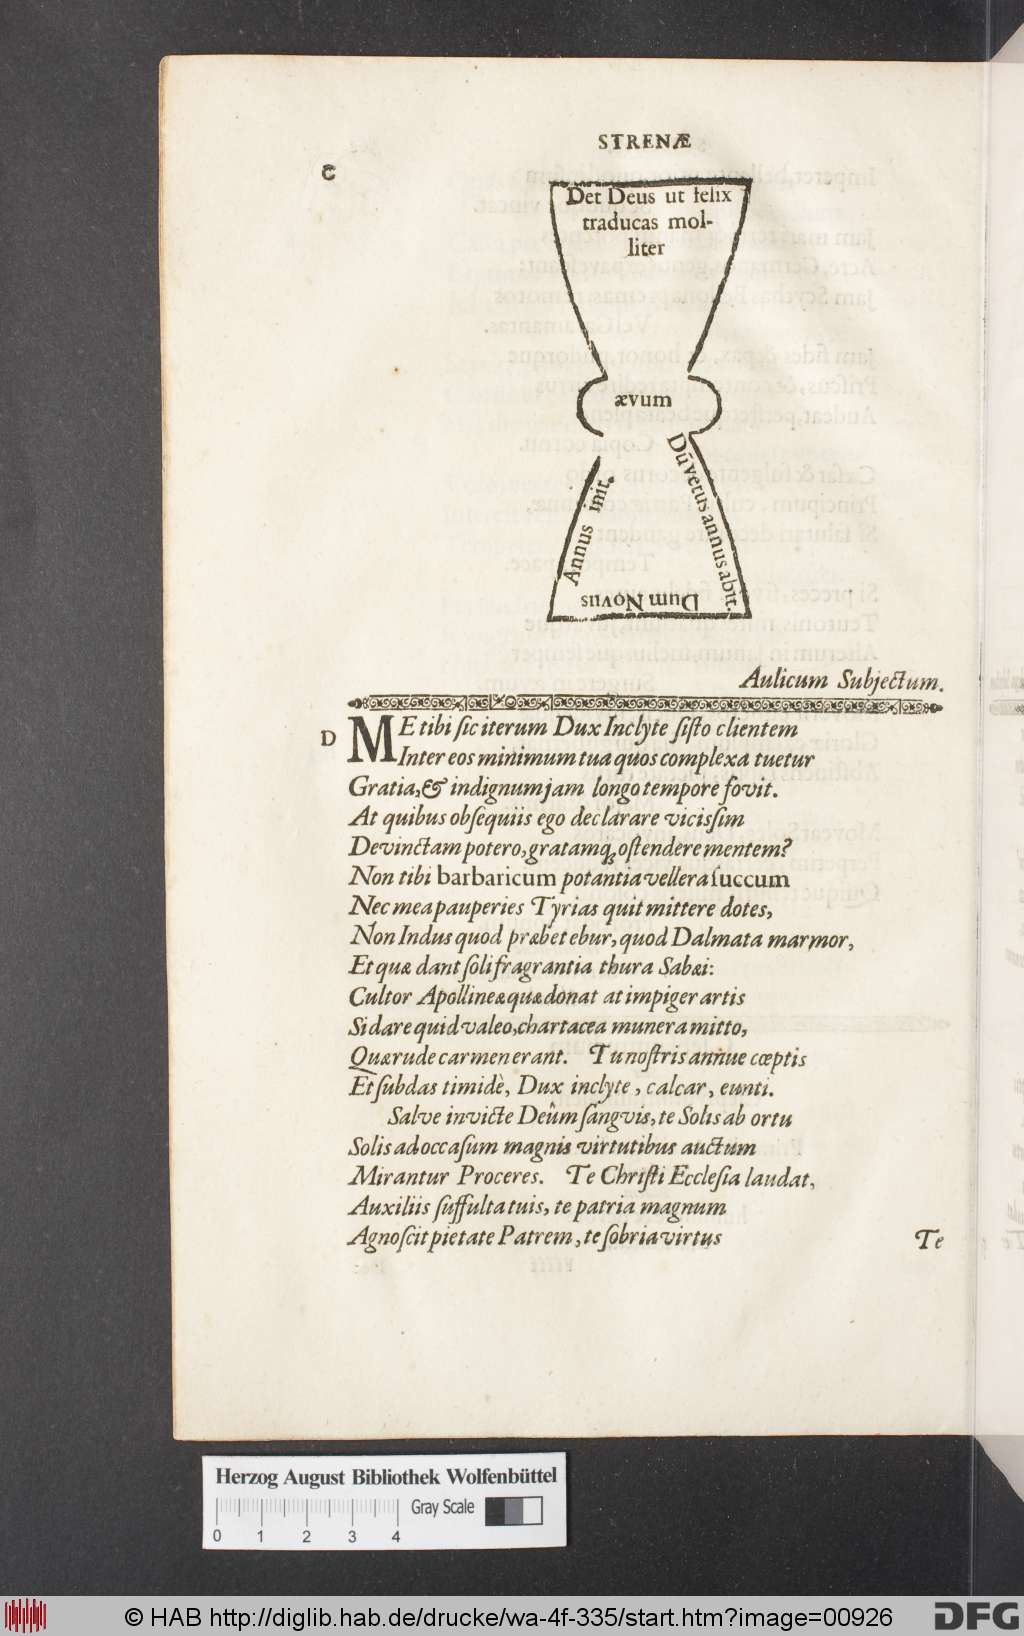 STRENÆ
C
Det Deus ut felix
traducas mol-
liter
ævum
Dũ vetus annus abit.
Dum Novus
Annus init.
Aulicum Subjectum.
D
ME tibi sic iterum Dux Inclyte sisto clientem
Inter eos minimum tua quos complexa tuetur
Gratia, & indignum jam longo tempore fovit.
At quibus obsequiis ego declarare vicissim
Devinctam potero, gratamq́ ostendere mentem?
Non tibi barbaricum potantia vellera succum
Nec mea pauperies Tyrias quit mittere dotes,
Non Indus quod præbet ebur, quod Dalmata marmor,
Et quæ dant soli fragrantia thura Sabæi:
Cultor Apollineæ quæ donat at impiger artis
Si dare quid valeo, chartacea munera mitto,
Quæ rude carmen erant. Tu nostris annue cœptis
Et subdas timidè, Dux inclyte, calcar, eunti.
Salve invicte Deûm sangvis, te Solis ab ortu
Solis ad occasum magnis virtutibus auctum
Mirantur Proceres. Te Christi Ecclesia laudat,
Auxiliis suffulta tuis, te patria magnum
Agnoscit pietate Patrem, te sobria virtus
Te
Herzog August Bibliothek Wolfenbüttel
Gray Scale
0 1 2 3 4
© HAB http://diglib.hab.de/drucke/wa-4f-335/start.htm?image=00926
DFG